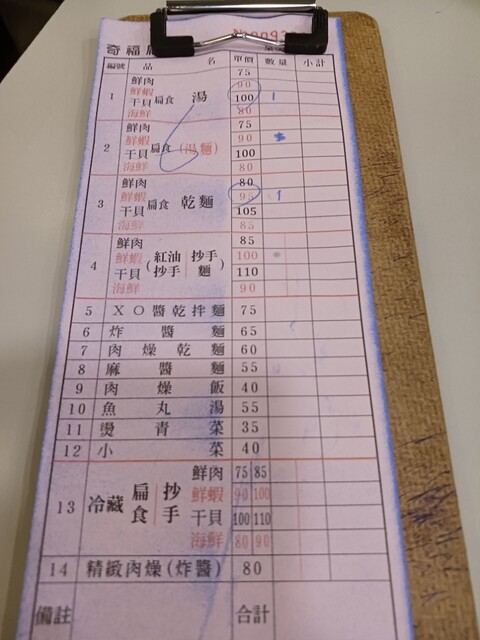 奇福
編號 品 名 單價 數量 小計
1 鮮肉 扁食 湯 75
鮮蝦 90
干貝 100 1
海鮮 80
2 鮮肉 扁食 (湯麵) 75
鮮蝦 90
干貝 100
海鮮 80
3 鮮肉 扁食 乾麵 80
鮮蝦 95 1
干貝 105
海鮮 85
4 鮮肉 (紅油抄手 | 抄手麵) 85
鮮蝦 100
干貝 110
海鮮 90
5 XO醬乾拌麵 75
6 炸醬麵 65
7 肉燥乾麵 60
8 麻醬麵 55
9 肉燥飯 40
10 魚丸湯 55
11 燙青菜 35
12 小菜 40
13 冷藏 扁食 | 抄手 鮮肉 75 85
鮮蝦 90 100
干貝 100 110
海鮮 80 90
14 精緻肉燥(炸醬) 80
備註 合計